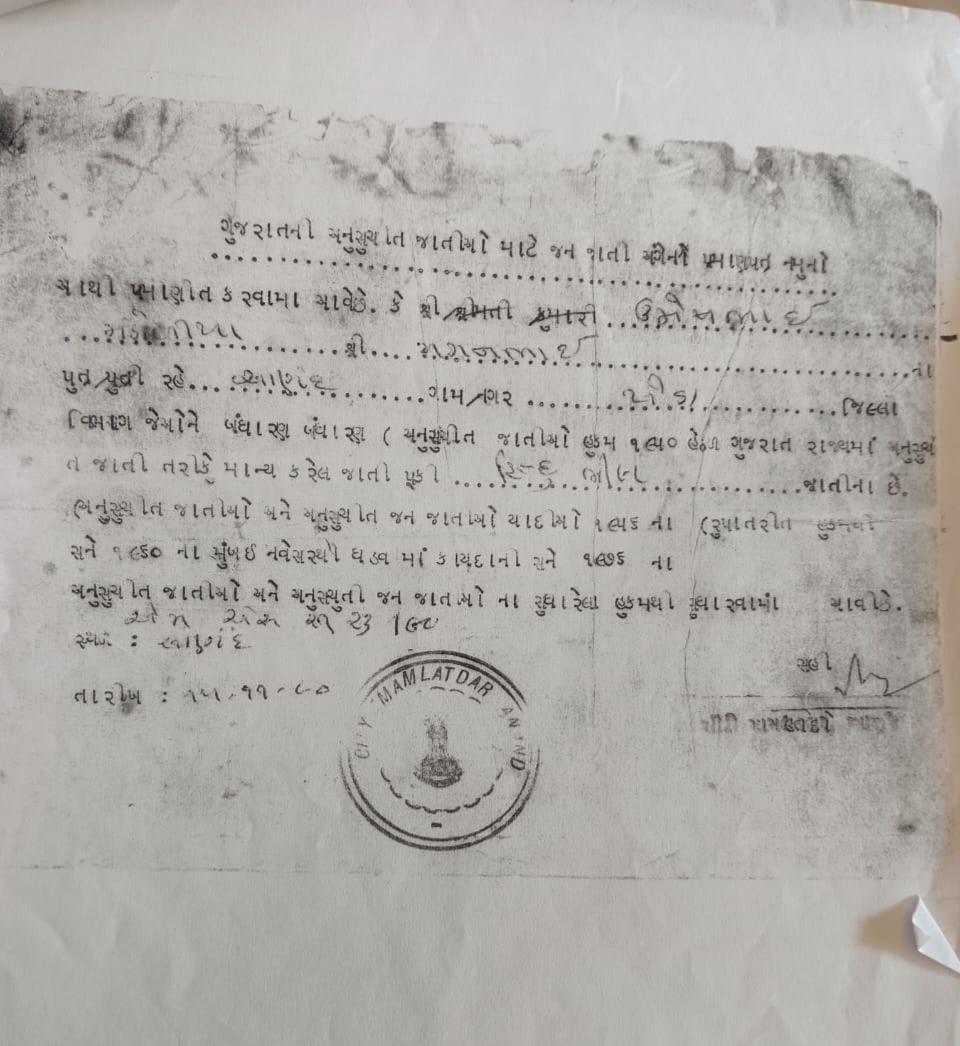 ગુજરાતની અનુસુચીત જાતીઓ માટે જન જાતી અંગેનો પ્રમાણપત્ર નમુનો
આથી પ્રમાણીત કરવામા આવેછે. કે શ્રી/શ્રીમતી કુમારી
શ્રી.... મગનભાઈ ના
પુત્ર/પુત્રી રહે... આણંદ ગામ/નગર ખેડા જિલ્લા
વિભાગ જેઓને બંધારણ બંધારણ ( અનુસુચીત જાતીઓ હુકમ ૧૯૫૦ હેઠળ ગુજરાત રાજ્યમાં અનુસુચી
ત જાતી તરીકે માન્ય કરેલ જાતી પૂકી હિન્દુ ભીલ જાતીના છે.
(અનુસુચીત જાતીઓ અને અનુસુચીત જન જાતીઓ યાદીઓ ૧૯૫૬ ના (રૂપાતરીત હુકમથી
સને ૧૯૬૦ ના મુંબઈ નવેસરથી ઘડવ માં કાયદાની સને ૧૯૭૬ ના
અનુસુચીત જાતીઓ અને અનુસુચુતી જન જાતીઓ ના સુધારેલા હુકમથી સુધારવામાં આવીછે.
એમ એસ
સ્થળ : આણંદ
સહી
તારીખ : ૧૫-૧૧-૮૦
CITY MAMLATDAR ANAND
સીટી મામલતદાર આણંદ